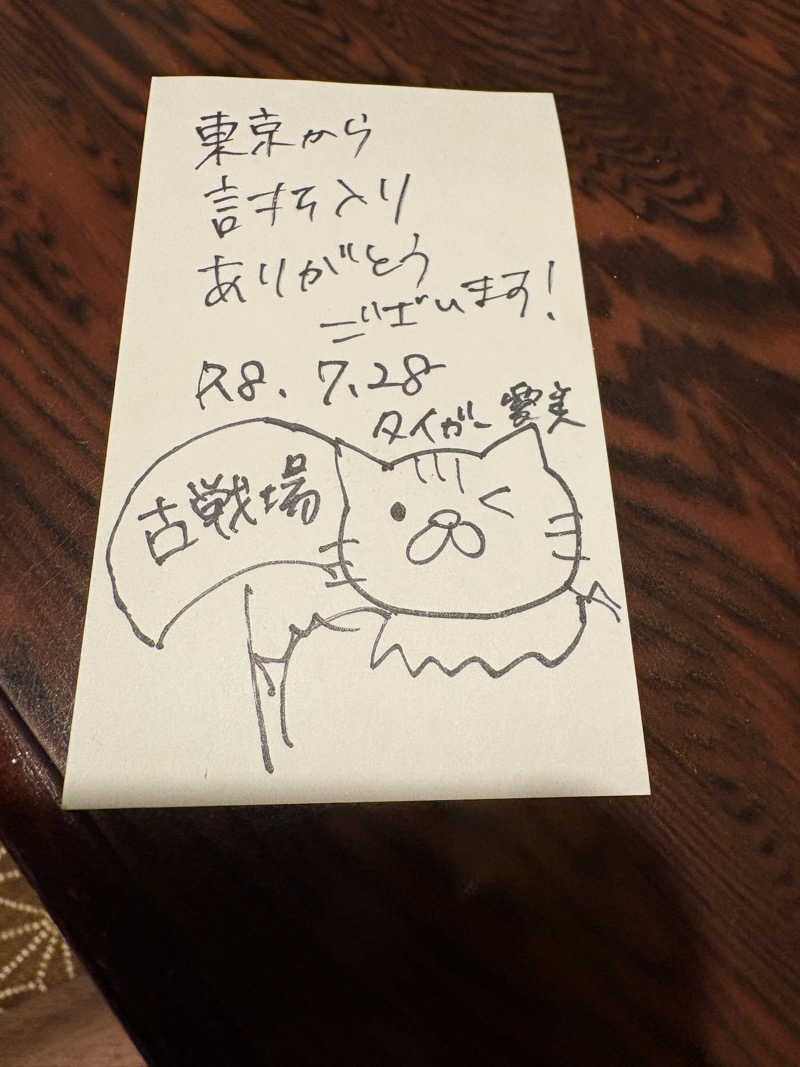 東京から
討ち入り
ありがとう
ございます!
R8.7.28
タイガー愛実
古戦場